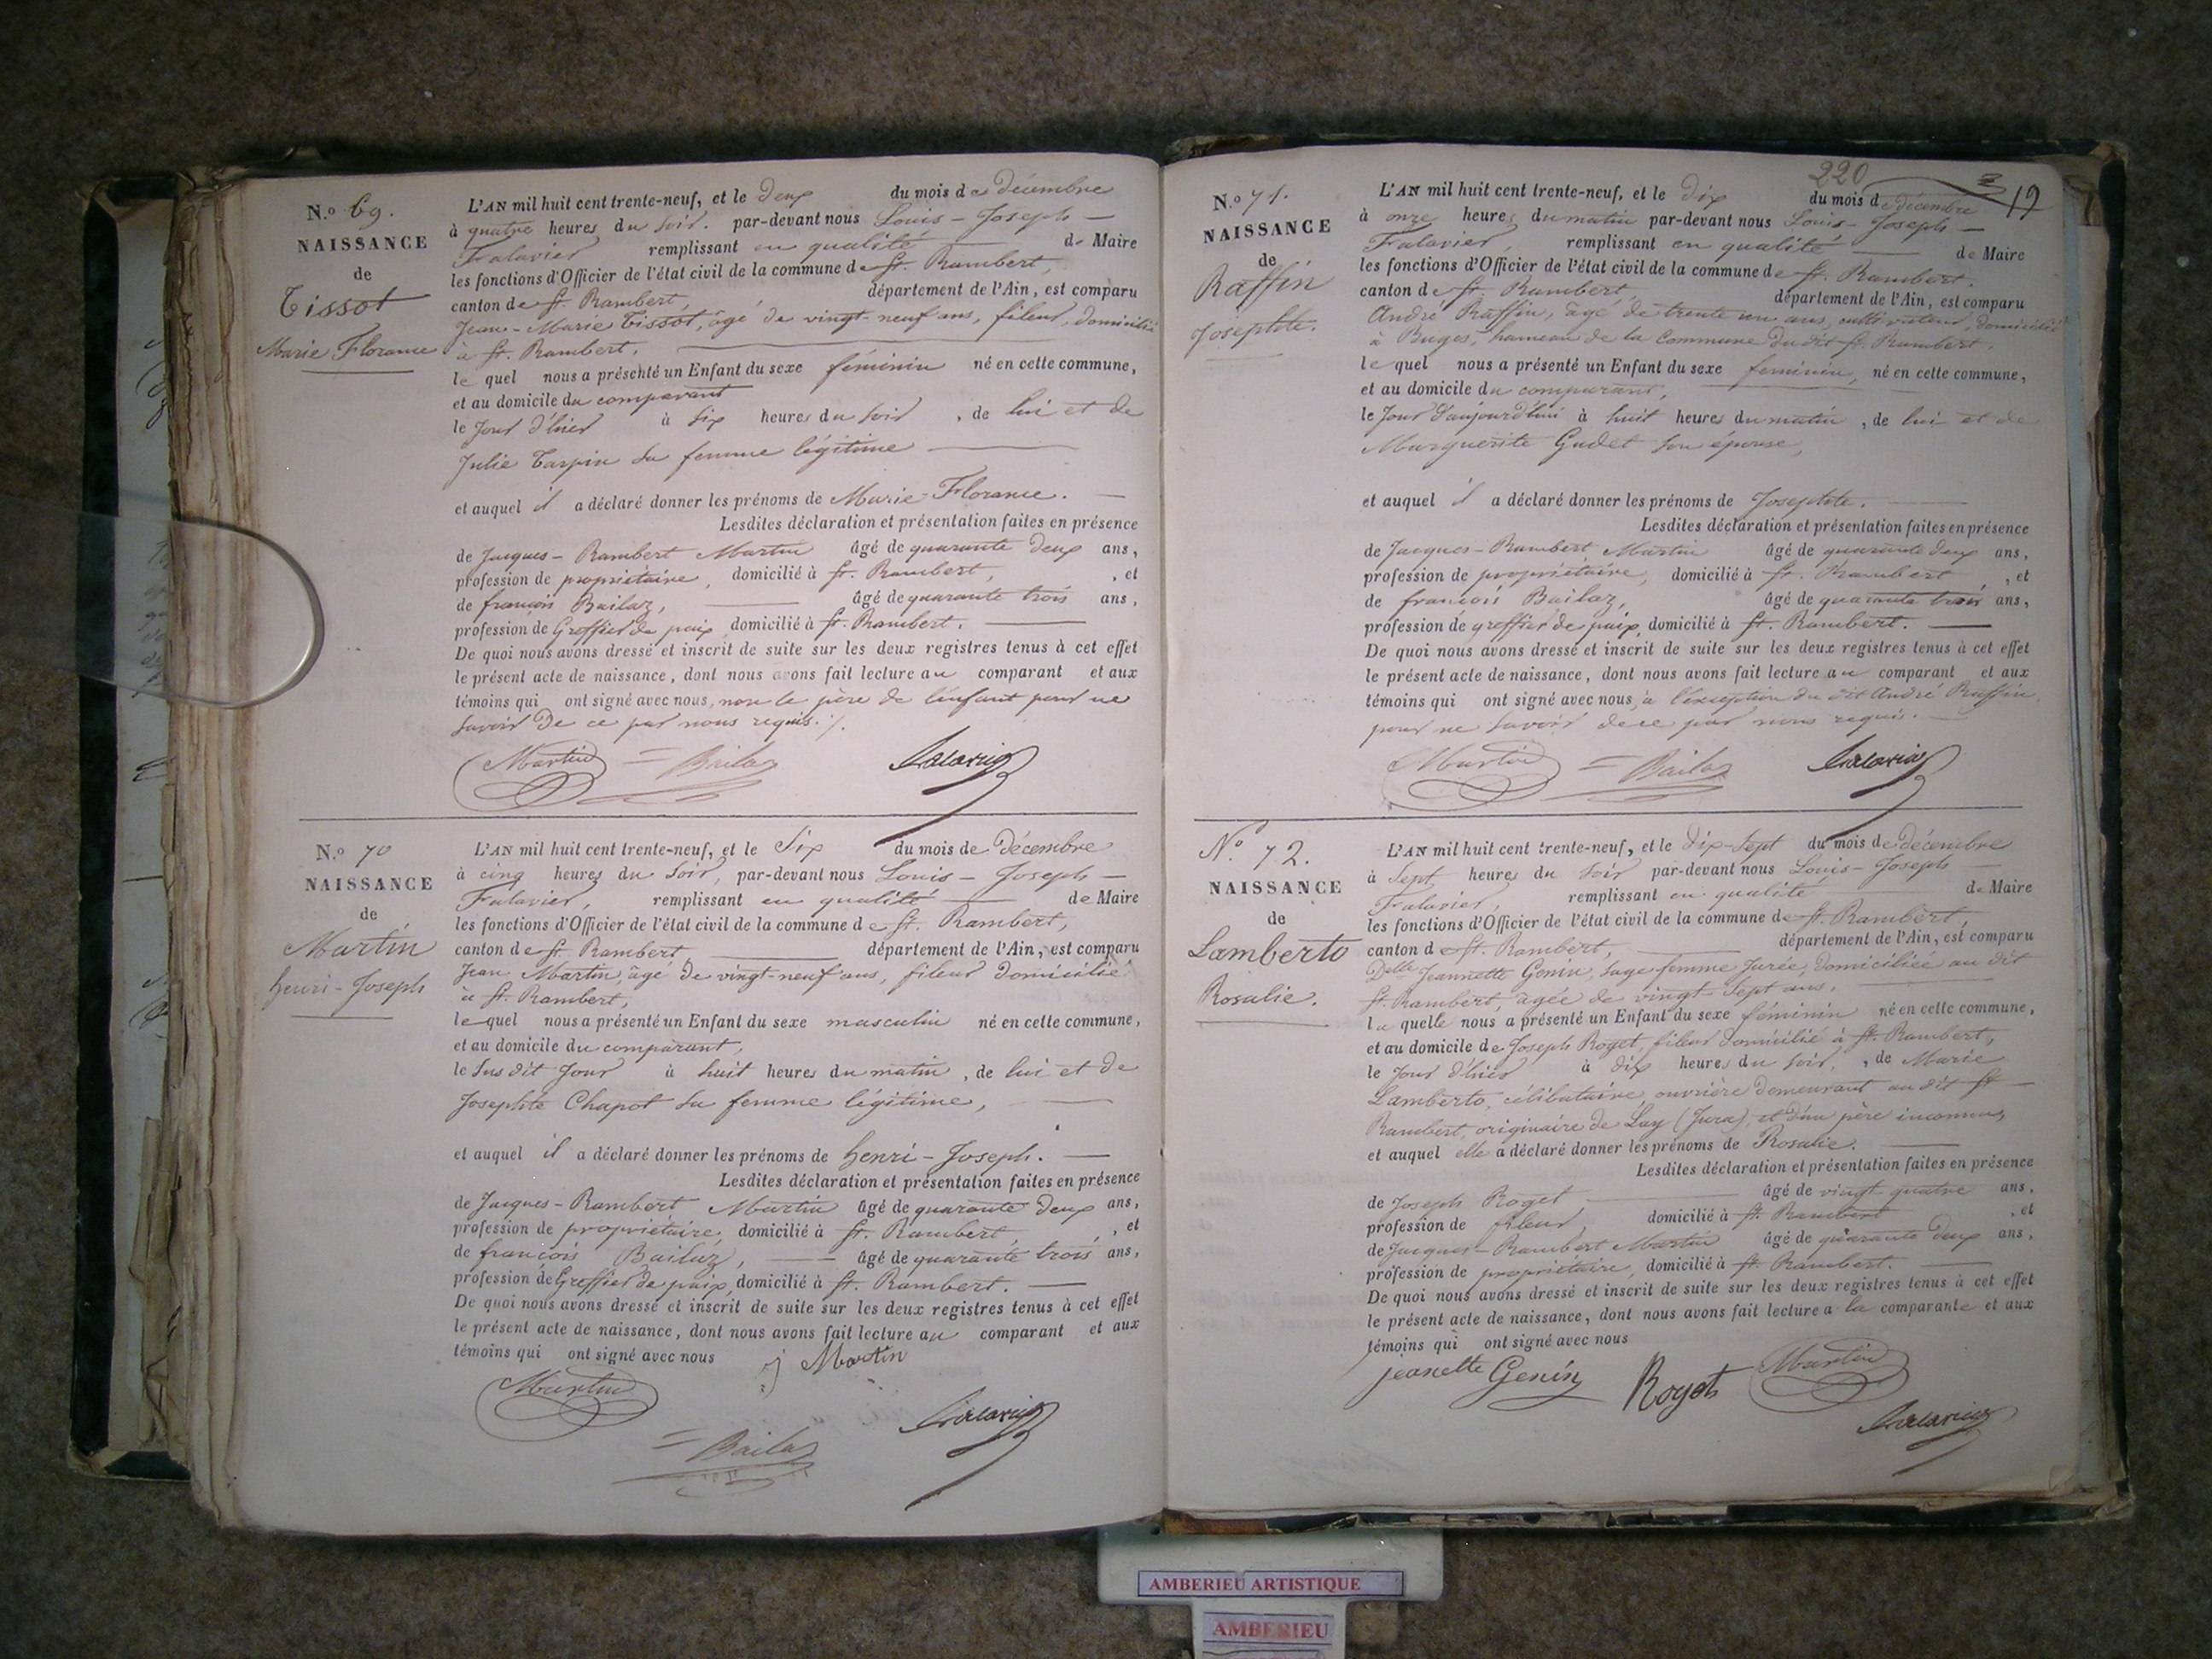 N.o 69.
NAISSANCE
de
Tissot
Marie Florance
L'AN mil huit cent trente-neuf, et le Deux du mois de Décembre
à quatre heures du Soir. par-devant nous Louis - Joseph -
Falavier remplissant en qualité de Maire
les fonctions d'Officier de l'état civil de la commune de St. Rambert,
canton de St. Rambert, département de l'Ain, est comparu
Jean-Marie Tissot, âgé de vingt-neuf ans, fileur, domicilié
à St. Rambert,
le quel nous a présenté un Enfant du sexe féminin né en cette commune,
et au domicile du comparant
le Jour d'hier à Six heures du Soir, de lui et de
Julie Tarpin sa femme légitime
et auquel il a déclaré donner les prénoms de Marie Florance.
Lesdites déclaration et présentation faites en présence
de Jacques - Rambert Martin âgé de quarante Deux ans,
profession de propriétaire, domicilié à St. Rambert, , et
de françois Bailaz, âgé de quarante trois ans,
profession de Greffier de paix, domicilié à St. Rambert.
De quoi nous avons dressé et inscrit de suite sur les deux registres tenus à cet effet
le présent acte de naissance, dont nous avons fait lecture au comparant et aux
témoins qui ont signé avec nous, non le père de l'enfant pour ne
Savoir De ce par nous requis ./.
Martin = Bailaz Falavier
N.o 70
NAISSANCE
de
Martin
henri - Joseph
L'AN mil huit cent trente-neuf, et le Six du mois de Décembre
à cinq heures du Soir, par-devant nous Louis - Joseph -
Falavier, remplissant en qualité de Maire
les fonctions d'Officier de l'état civil de la commune de St. Rambert,
canton de St. Rambert département de l'Ain, est comparu
Jean Martin, âgé de vingt-neuf ans, fileur domicilié
à St. Rambert,
le quel nous a présenté un Enfant du sexe masculin né en cette commune,
et au domicile du comparant,
le Sus dit Jour à huit heures du matin, de lui et de
Josephte Chapot sa femme légitime,
et auquel il a déclaré donner les prénoms de henri - Joseph.
Lesdites déclaration et présentation faites en présence
de Jacques - Rambert Martin âgé de quarante Deux ans,
profession de propriétaire, domicilié à St. Rambert, , et
de françois Bailaz, âgé de quarante trois ans,
profession de Greffier de paix, domicilié à St. Rambert.
De quoi nous avons dressé et inscrit de suite sur les deux registres tenus à cet effet
le présent acte de naissance, dont nous avons fait lecture au comparant et aux
témoins qui ont signé avec nous j Martin
Martin
= Bailaz Falavier
220
19
N.o 71.
NAISSANCE
de
Raffin
Josephte.
L'AN mil huit cent trente-neuf, et le Dix du mois de décembre
à onze heures du matin par-devant nous Louis - Joseph -
Falavier, remplissant en qualité de Maire
les fonctions d'Officier de l'état civil de la commune de St. Rambert.
canton de St. Rambert, département de l'Ain, est comparu
André Raffin, âgé de trente un ans, cultivateur, domicilié
à Buges, hameau de la Commune du dit St. Rambert.
le quel nous a présenté un Enfant du sexe féminin, né en cette commune,
et au domicile du comparant,
le Jour d'aujourd'hui à huit heures du matin, de lui et de
Marguerite Gudet son épouse,
et auquel il a déclaré donner les prénoms de Josephte.
Lesdites déclaration et présentation faites en présence
de Jacques - Rambert Martin âgé de quarante deux ans,
profession de propriétaire, domicilié à St. Rambert, , et
de françois Bailaz, âgé de quarante trois ans,
profession de greffier de paix, domicilié à St. Rambert.
De quoi nous avons dressé et inscrit de suite sur les deux registres tenus à cet effet
le présent acte de naissance, dont nous avons fait lecture au comparant et aux
témoins qui ont signé avec nous, à l'exception du dit André Raffin
pour ne Savoir de ce par nous requis.
Martin = Bailaz Falavier
N.o 72.
NAISSANCE
de
Lamberto
Rosalie.
L'AN mil huit cent trente-neuf, et le Dix-Sept du mois de décembre
à Sept heures du Soir par-devant nous Louis - Joseph
Falavier, remplissant en qualité de Maire
les fonctions d'Officier de l'état civil de la commune de St. Rambert,
canton de St. Rambert, département de l'Ain, est comparu
Delle Jeannette Genin, Sage-femme Jurée, Domiciliée au dit
St. Rambert, agée de vingt-Sept ans,
la quelle nous a présenté un Enfant du sexe féminin né en cette commune,
et au domicile de Joseph Roget, fileur domicilié à St. Rambert,
le Jour d'hier à dix heures du Soir, de Marie
Lamberto, célibataire, ouvrière demeurant au dit St
Rambert, originaire de Lay (Jura), et d'un père inconnu,
et auquel elle a déclaré donner les prénoms de Rosalie.
Lesdites déclaration et présentation faites en présence
de Joseph Roget âgé de vingt quatre ans,
profession de fileur, domicilié à St. Rambert , et
de Jacques - Rambert Martin âgé de quarante deux ans,
profession de propriétaire, domicilié à St. Rambert.
De quoi nous avons dressé et inscrit de suite sur les deux registres tenus à cet effet
le présent acte de naissance, dont nous avons fait lecture a la comparante et aux
témoins qui ont signé avec nous
jeanette Genin Royet Martin
Falavier
AMBERIEU ARTISTIQUE
AMBERIEU